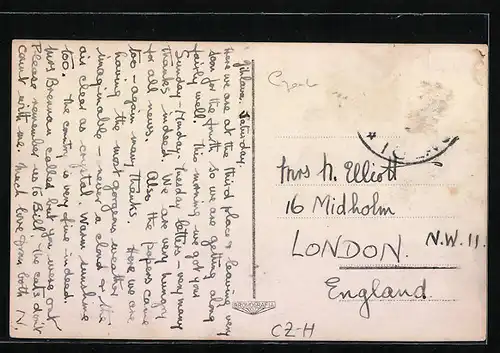 Jihlava. Saturday.
Here we are at the third place & leaving very
soon for the fourth so we are getting along
fairly well. This morning we got your
Sunday - Monday - Tuesday letters - very many
thanks indeed. We are very hungry
for all news. Also the papers came
too - again many thanks. Here we are
having the most gorgeous weather
imaginable - never a cloud & the
air clear as crystal. Warm sunshine
too. The country is very fine indeed.
Mrs Brennan called but you were out
Please remember us to Bill! The cats don't
count with me. Much love from both N.
Czech
Mrs N. Elliott
16 Midholm
LONDON. N.W.11.
England
BROMOGRAFIA
CZ-H